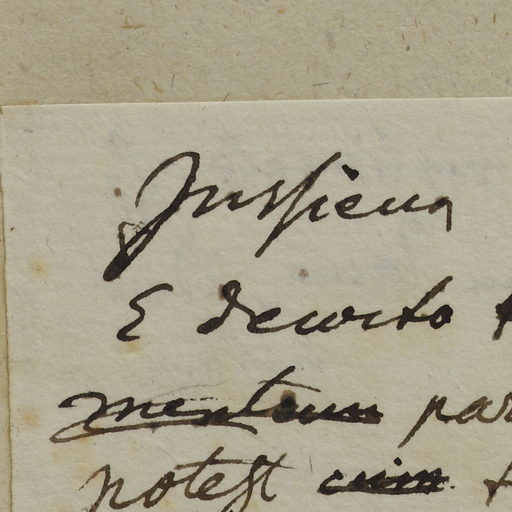 Jussieua
E decurto
mentum par
potest cum